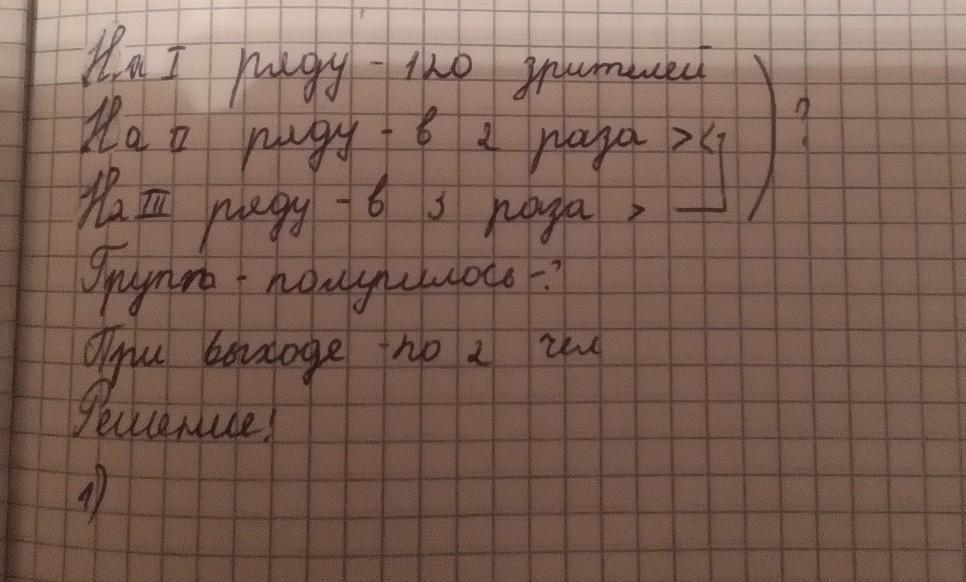 На I ряду - 120 зрителей
На II ряду - в 2 раза > ?
На III ряду - в 3 раза >
Групп - получилось - ?
При выходе - по 2 чел
Решение:
1)